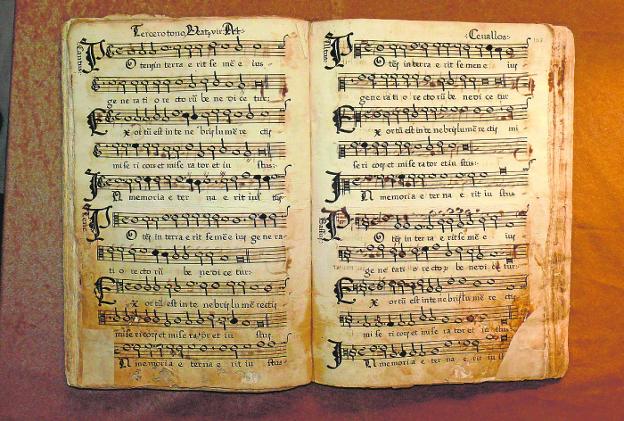 Tercero tono. Beatus vir. A4.
Cantus
Potẽs in terra e rit se mẽ e ius
ge ne ra ti o re cto rũ be ne di ce tur:
Ex or tũ est in te ne bris lu mẽ re ctis
mi se ri cors et mi se ra tor et iu stus:
In memoria e ter na e rit iu stus
Potẽs in terra e rit se mẽ e ius ge ne ra
ti o re cto rũ be ne di ce tur:
Ex or tũ est in te ne bris lu mẽ re ctis
mi se ri cors et mi se ra tor et iu stus
In memoria e ter na e rit iu stus
Ceuallos
Potẽs in terra e rit se men e ius
ge ne ra ti o re cto rũ be ne di ce tur
Ex or tũ est in te ne bris lu mẽ re ctis mi
se ri cors et mi se ra tor et iu stus:
In memoria e ter na e rit iu stus
Potẽs in ter ra e rit se mẽ e ius
ge ne ra ti o re cto rũ be ne di ce tur:
Ex or tũ est in te ne bris lu mẽ re ctis
mi se ri cors et mi se ra tor et iu stus
In memoria e ter na e rit iu